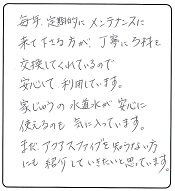 毎年、定期的に メンテナンスに
来て下さる方が、丁寧にろ材を
交換してくれているので
安心して 利用しています。
家じゅうの 水道水が 安心に
使えるのも 気に入っています。
まだ、アクアスファイブを 知らない方
にも 紹介していきたいと思っています。